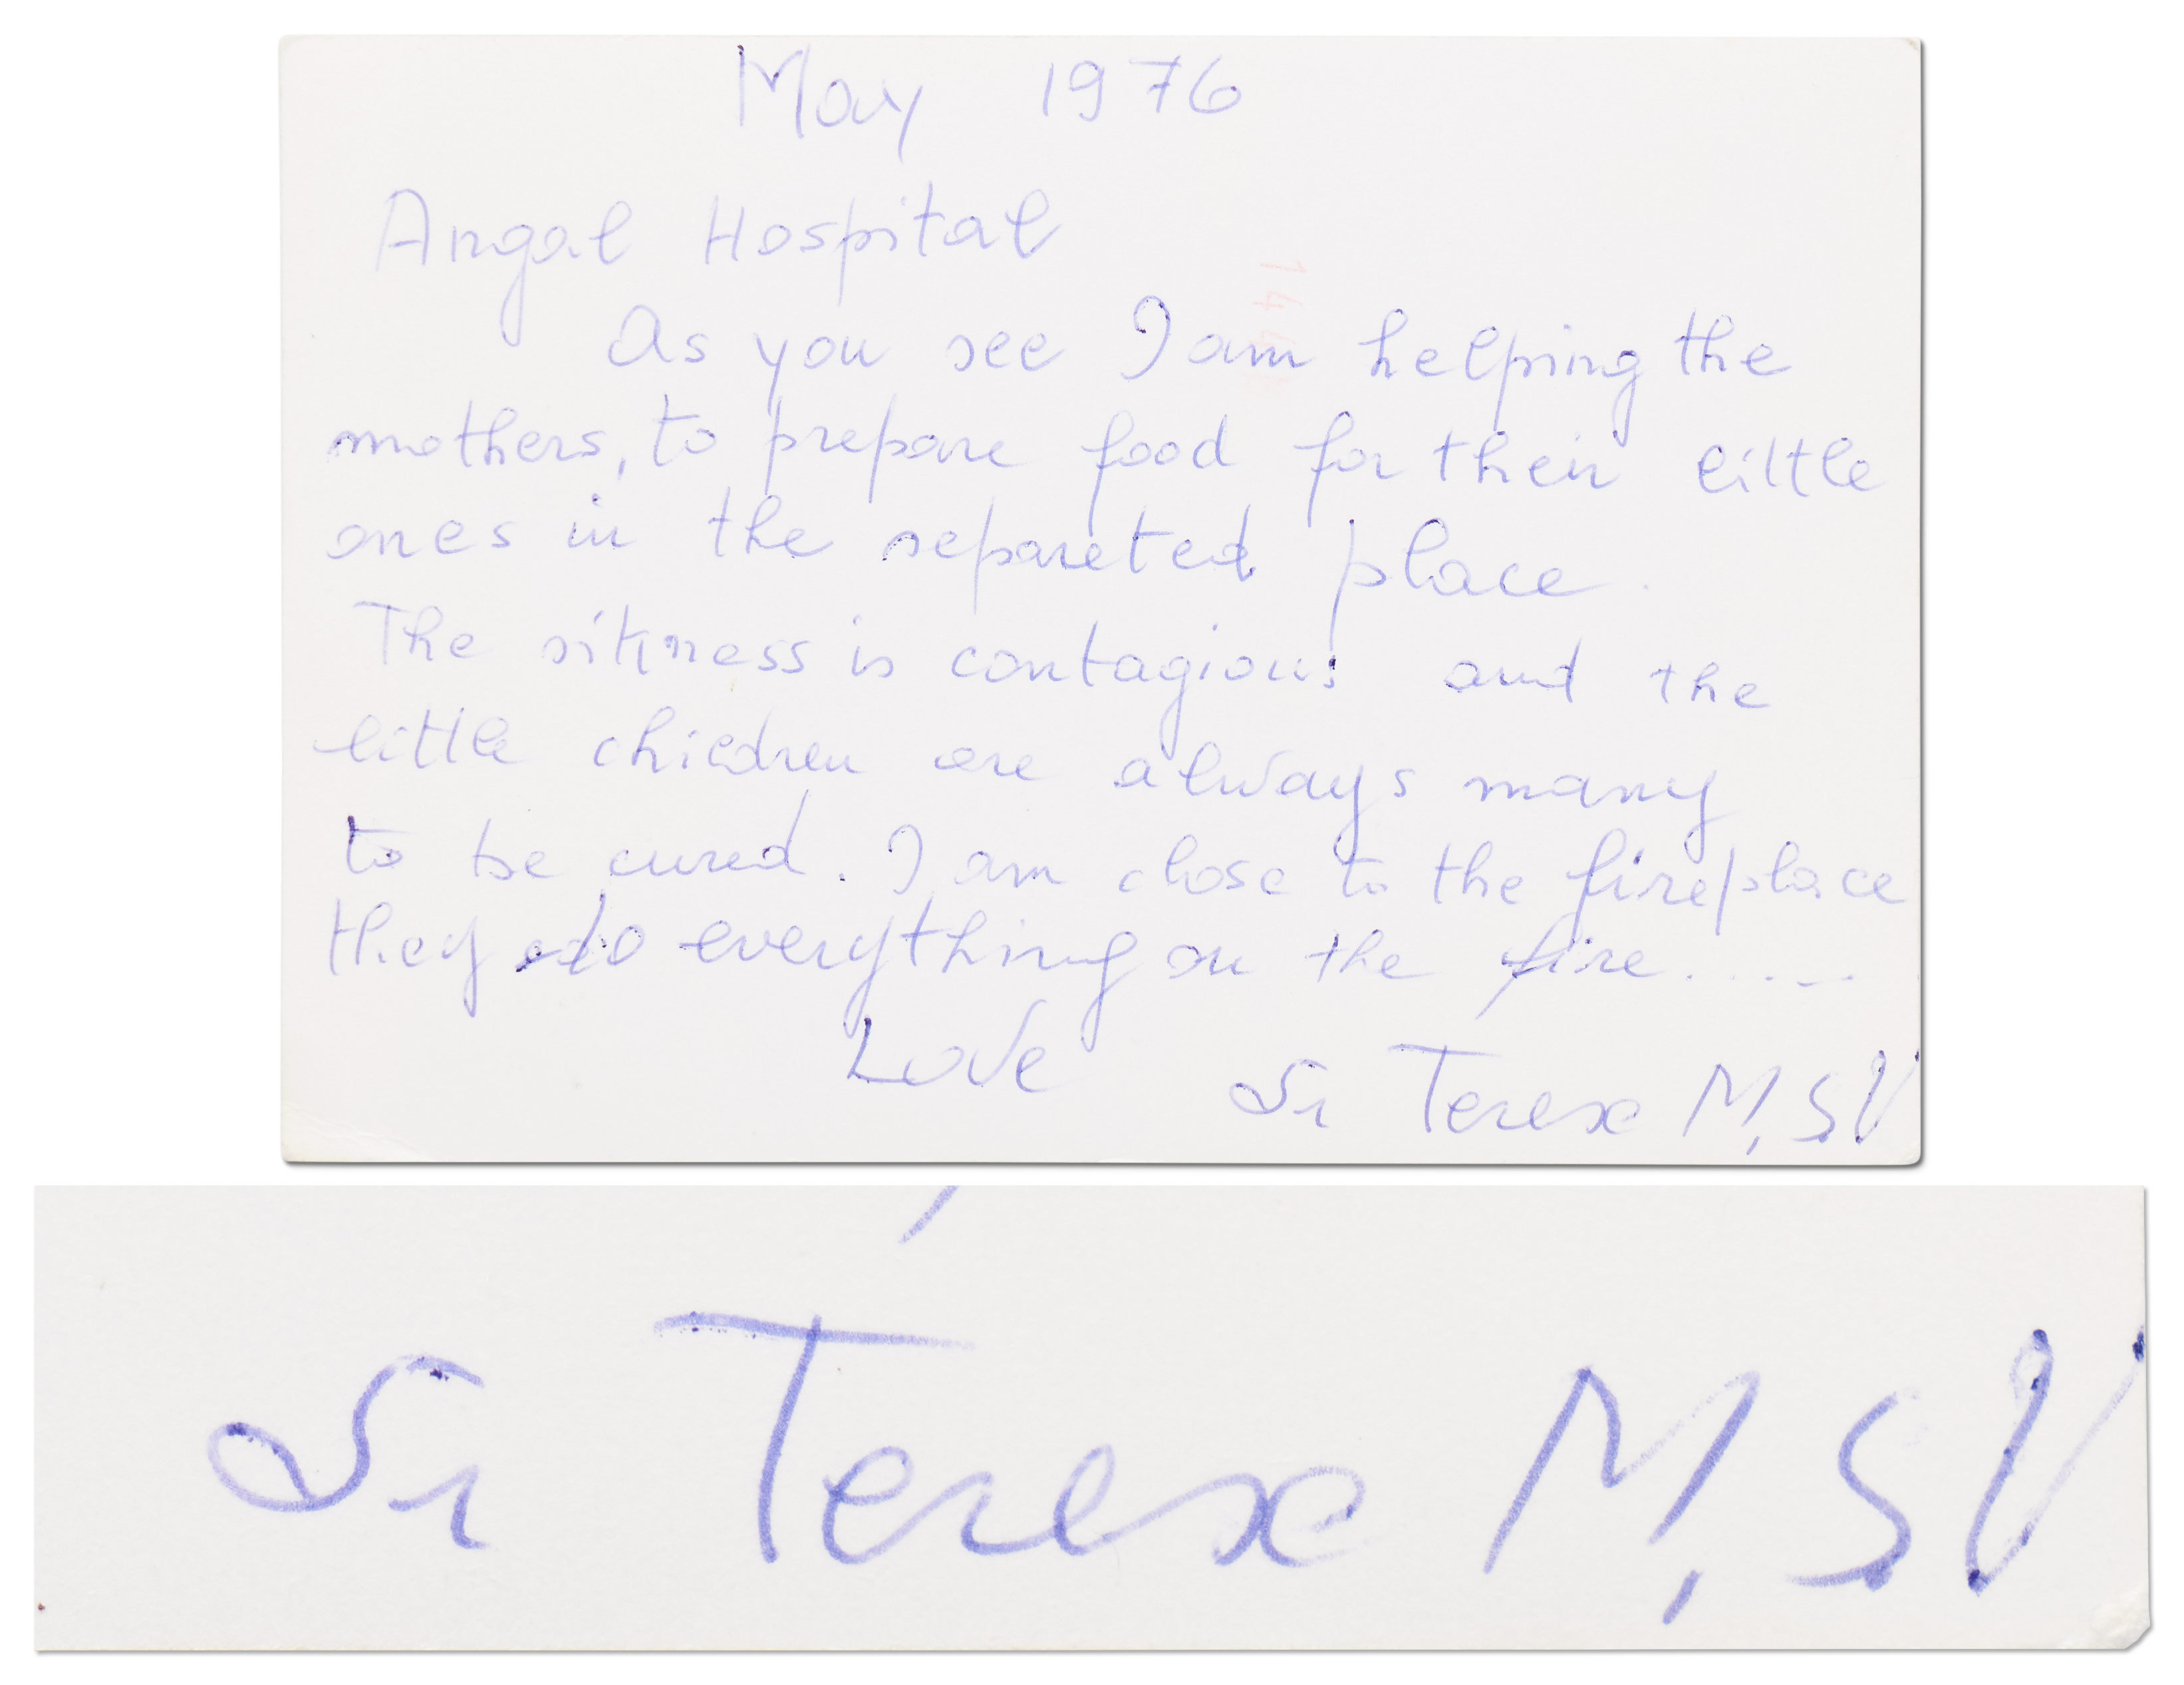 May 1976
Angal Hospital
As you see I am helping the
mothers, to prepare food for their little
ones in the separeted place.
The sikness is contagious and the
little children are always many
to be cured. I am close to the fireplace
they do everything on the fire.....
Love Sr Terese M, S.V
Sr Terese M, S.V